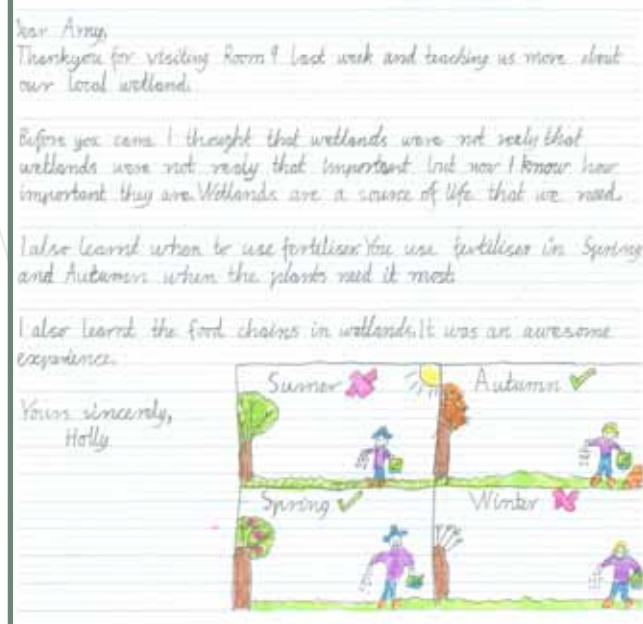 Dear Amy,
Thankyou for visiting Room 9 last week and teaching us more about
our local wetland.
Before you came I thought that wetlands were not realy that
wetlands were not realy that important but now I know how
important they are. Wetlands are a source of life that we need.
I also learnt when to use fertiliser. You use fertiliser in Spring
and Autumn when the plants need it most.
I also learnt the food chains in wetlands. It was an awesome
experience.
Yours sincerly,
Holly
Sumer
Autumn
Spring
Winter